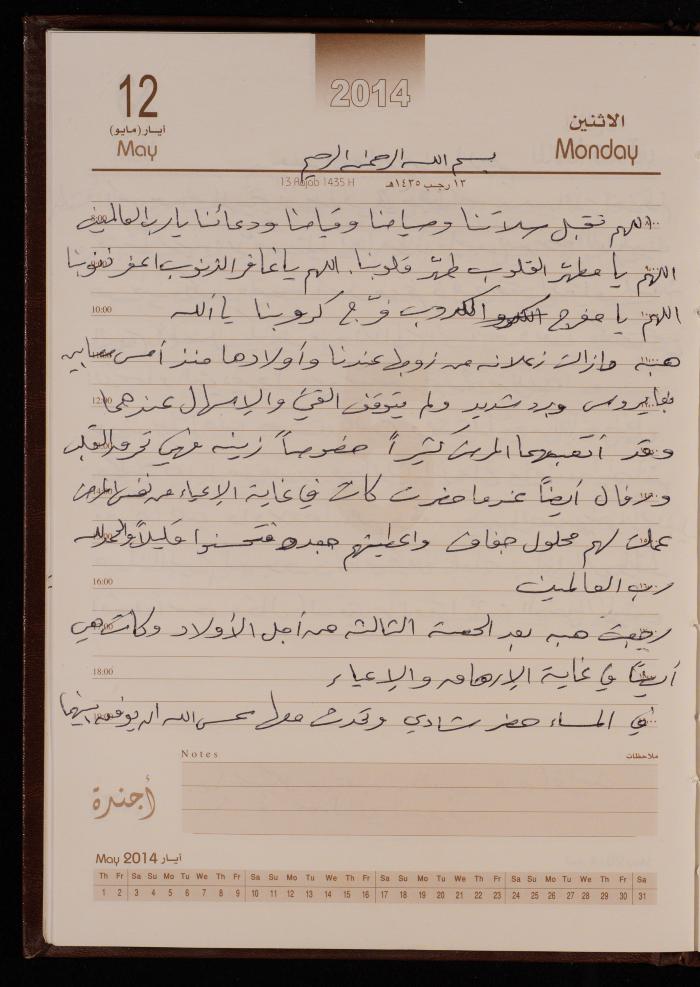 12
أيار (مايو)
May
2014
الاثنين
Monday
بسم الله الرحمن الرحيم
13 Rajab 1435 H
١٣ رجب ١٤٣٥هـ
اللهم تقبل صلاتنا وصيامنا وقيامنا ودعائنا يا رب العالمين
اللهم يا مطهّر القلوب طهّر قلوبنا. اللهم يا غافر الذنوب اغفر ذنوبنا
10:00 اللهم يا مفرج الكروب فرّج كروبنا يا الله
هبه مازالت زعلانه من زوجها عندنا وأولادها منذ أمس مصابين
12:00 بفايروس وبرد شديد ولم يتوقف القيئ والإسهال عندهما
وقد أتعبهما المرض كثيراً خصوصاً زينه فهي تحرق القلب
أيضاً عندما حضرت كانت في غاية الإعياء من نفس المرض
عملت لهم محلول جفاف واعطيتهم فتحسنوا قليلاً والحمد لله
16:00 رب العالمين
رجعت هبه بعد الحصة الثالثة من أجل الأولاد وكانت هي
18:00 أيضاً في غاية الإرهاق والإعياء
في المساء حضر شادي وتحدث معها عسى الله ان يوفق بينهما
Notes
ملاحظات
أجندة
May 2014 أيار
Th Fr Sa Su Mo Tu We Th Fr Sa Su Mo Tu We Th Fr Sa Su Mo Tu We Th Fr Sa Su Mo Tu We Th Fr Sa
1 2 3 4 5 6 7 8 9 10 11 12 13 14 15 16 17 18 19 20 21 22 23 24 25 26 27 28 29 30 31